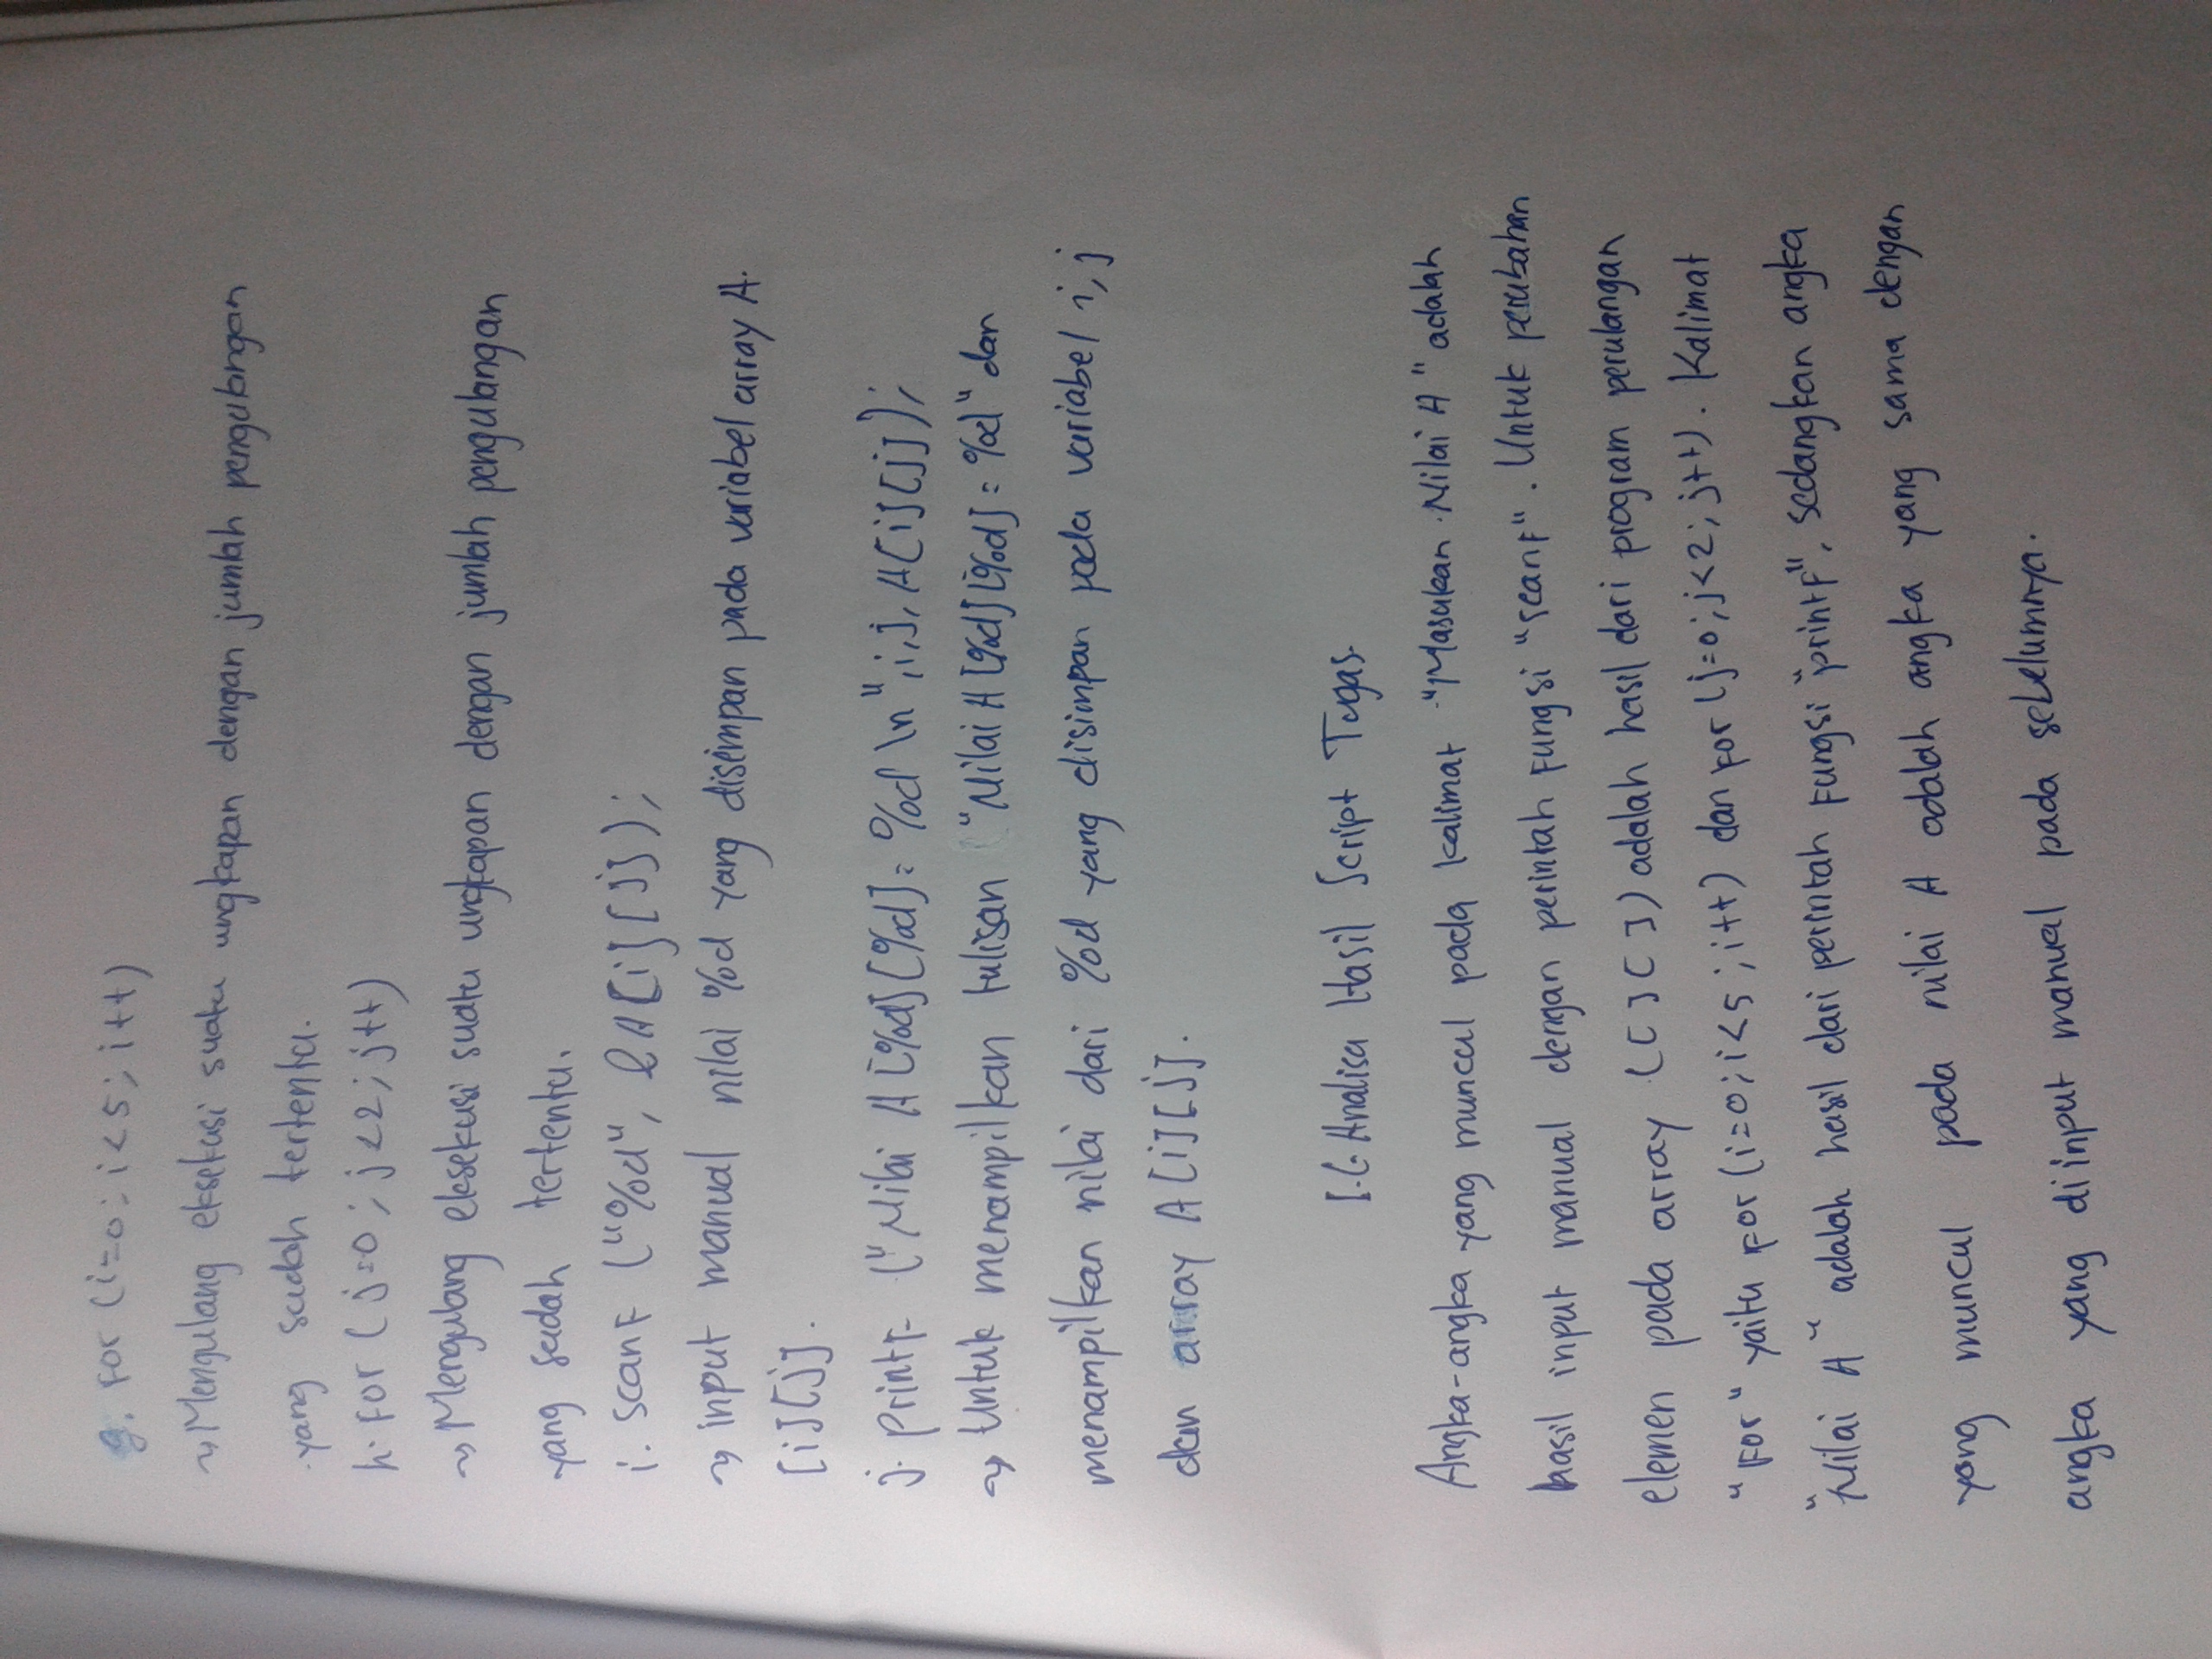 g. For (i=0; i<5; i++)
~> Mengulang eksekusi suatu ungkapan dengan jumlah pengulangan
yang sudah tertentu.
h. For (j=0; j<2; j++)
~> Mengulang eksekusi suatu ungkapan dengan jumlah pengulangan
yang sudah tertentu.
i. scanF ("%d", &A[i][j]);
~> input manual nilai %d yang disimpan pada variabel array A.
[i][j].
j. printF ("Nilai A[%d][%d]= %d \n",i,j, A[i][j]);
~> Untuk menampilkan tulisan "Nilai A[%d][%d]= %d" dan
menampilkan nilai dari %d yang disimpan pada variabel i, j
dan array A[i][j].
Analisa Hasil Script Tugas.
Angka-angka yang muncul pada kalimat "Masukan Nilai A" adalah
hasil input manual dengan perintah Fungsi "scanF". Untuk perubahan
elemen pada array ([][]) adalah hasil dari program perulangan
"For" yaitu For (i=0; i<5; i++) dan For (j=0; j<2; j++). Kalimat
"Nilai A" adalah hasil dari perintah Fungsi "printF", sedangkan angka
yang muncul pada nilai A adalah angka yang sama dengan
angka yang diinput manual pada sebelumnya.